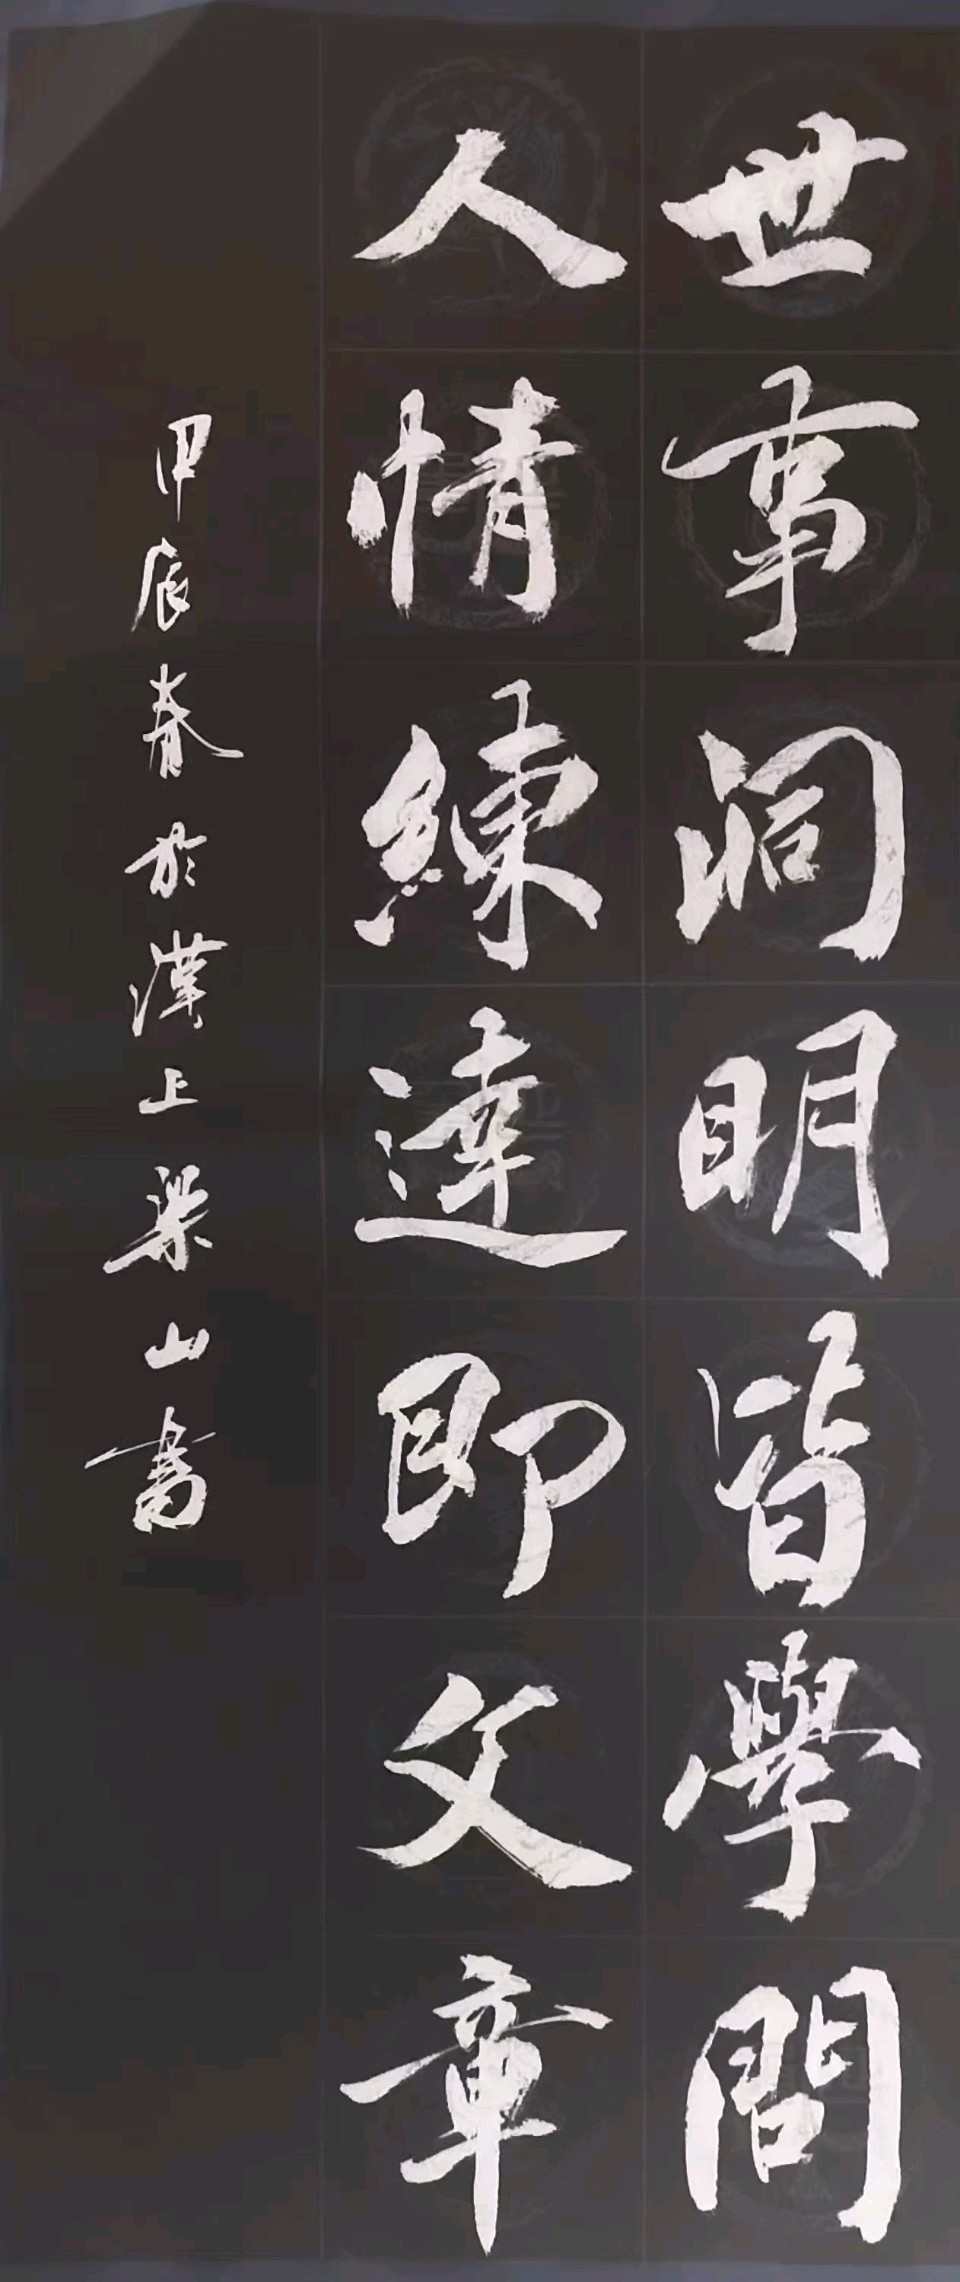 世事洞明皆學問
人情練達即文章
甲辰春於漢上梁山書